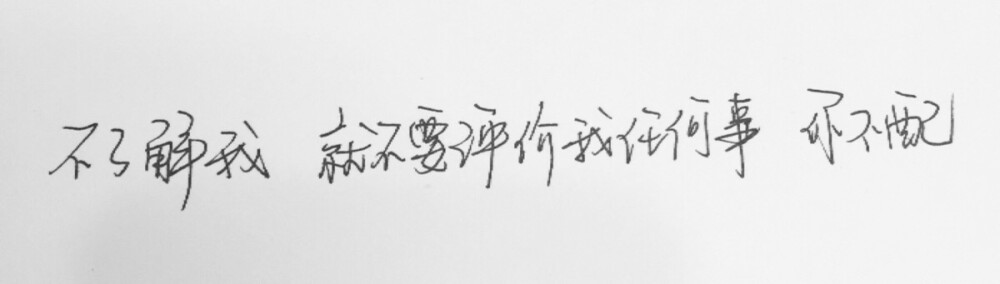 不了解我 就不要评价我任何事 你不配